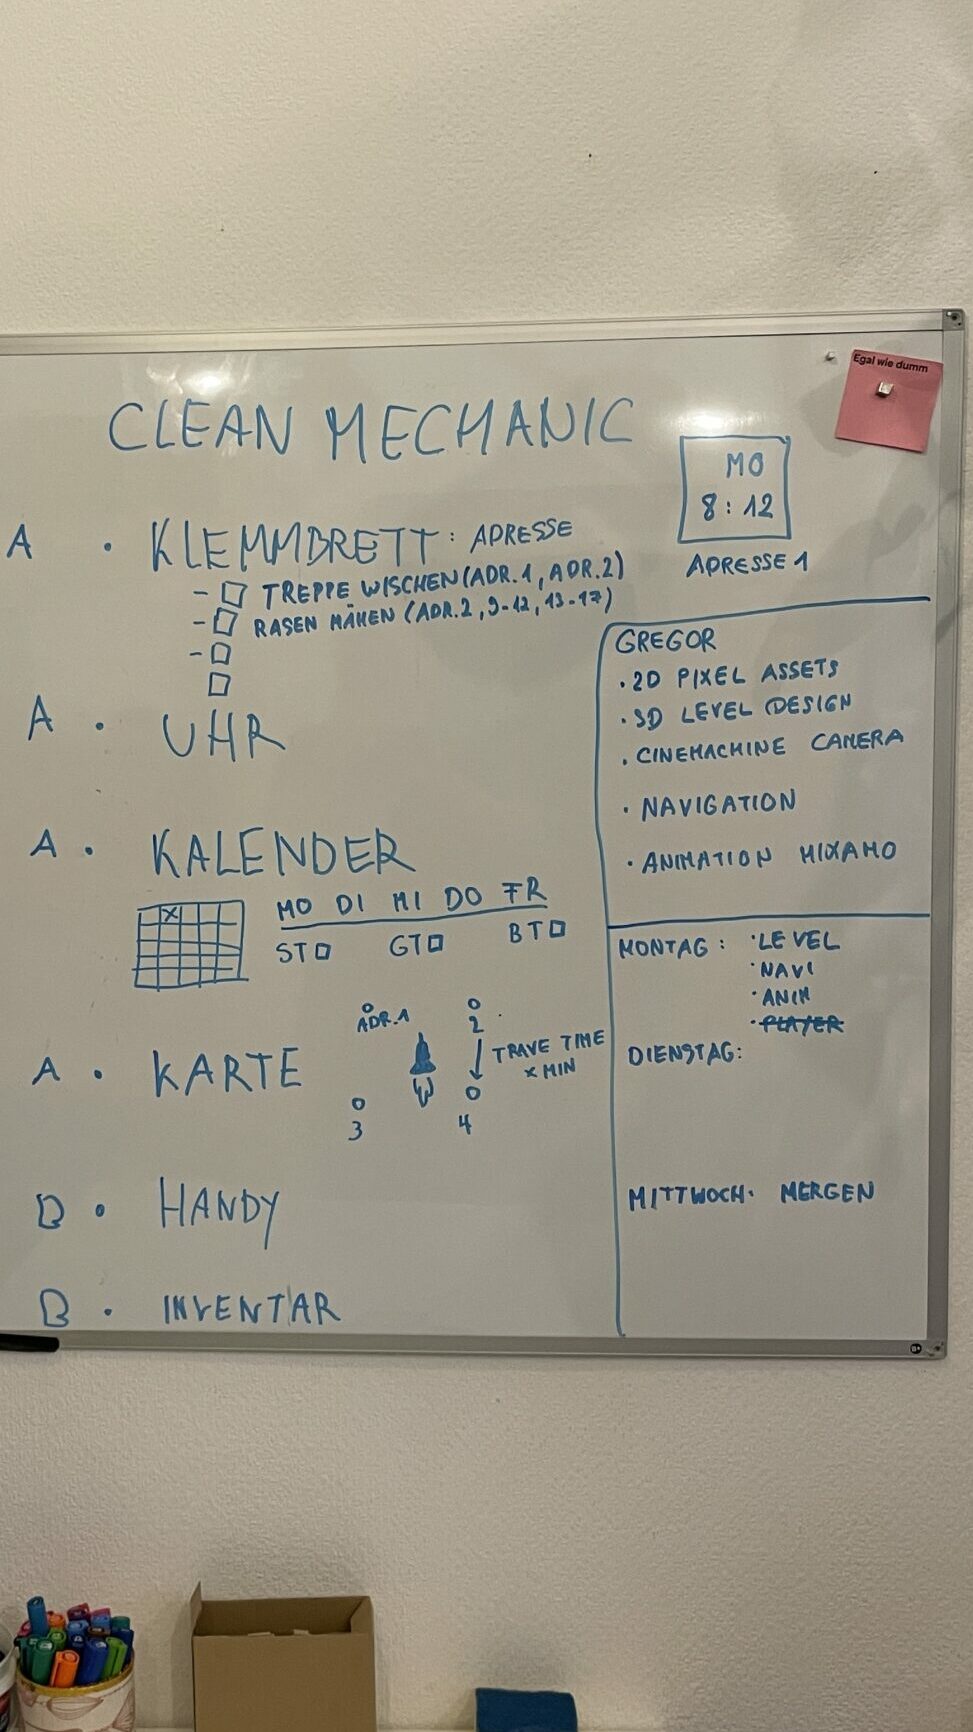 Egal wie dumm
CLEAN MECHANIC
MO
8:12
ADRESSE 1
A • KLEMMBRETT: ADRESSE
- □ TREPPE WISCHEN (ADR.1, ADR.2)
- □ RASEN MÄHEN (ADR.2, 9-12, 13-17)
- □
□
A • UHR
A • KALENDER
X
MO DI MI DO FR
ST□ GT□ BT□
A • KARTE
ADR.1
2
TRAVE TIME
x MIN
3
4
B • HANDY
B • INVENTAR
GREGOR
• 2D PIXEL ASSETS
• 3D LEVEL DESIGN
• CINEMACHINE CAMERA
• NAVIGATION
• ANIMATION MIXAMO
MONTAG: • LEVEL
• NAVI
• ANIM
• PLAYER
DIENSTAG:
MITTWOCH: MERGEN